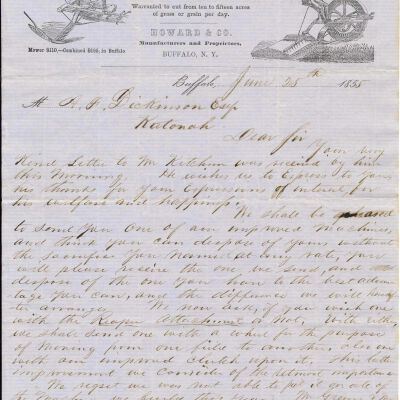 Warranted to cut from ten to fifteen acres
of grass or grain per day.
HOWARD & CO.
Manufacturers and Proprietors,
BUFFALO, N. Y.
Mower $110,—Combined $130, in Buffalo
Buffalo, June 25th 1855
A. F. Dickinson Esq
Katonah
Dear Sir
Your very
Kind Letter to Mr Ketchum was received by him
this Morning. He wishes us to express to you
his thanks for your expressions of interest for
his welfare and happiness.
We shall be pleased
to send you one of our improved Machines,
and think you can dispose of yours without
the sacrifice you name at any rate, you
will please receive the one we send, and
dispose of the one you have to the best advan-
tage you can, and the difference we will
to arrange. We now ask, if you wish one
with the Reaper attachment or not,
we shall send one with a wheel for the purpose
of moving from one field to another also one
with an improved clutch upon it, this latter
improvement we consider of the utmost importance
We regret we was not able to